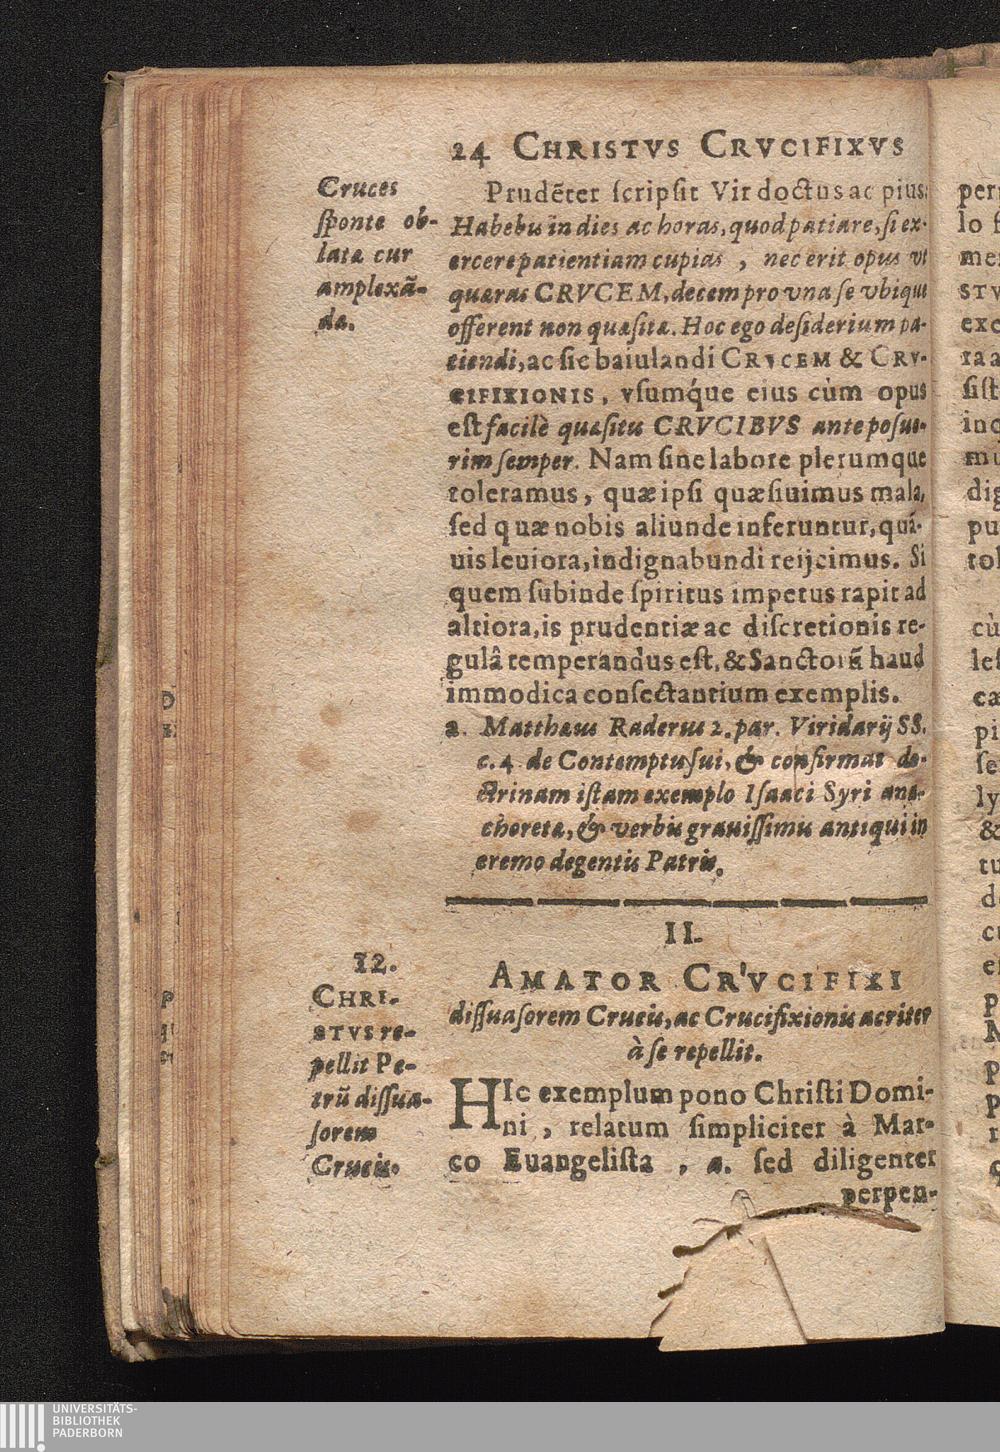 24 CHRISTVS CRVCIFIXVS
Cruces
ſponte ob-
latæ cur
amplexã-
dæ.
Prudẽter ſcripſit Vir doctus ac pius:
Habebis in dies ac horas, quod patiare, ſi ex-
ercere patientiam cupias, nec erit opus vt
quæras CRVCEM, decem pro vna ſe vbique
offerent non quæſitæ. Hoc ego deſiderium pa-
tiendi, ac ſic baiulandi CRVCEM & CRV-
CIFIXIONIS, vſumq́ue eius cùm opus
eſt facilè quæſitis CRVCIBVS antepoſue-
rim ſemper. Nam ſine labore plerumque
toleramus, quæ ipſi quæſiuimus mala,
ſed quæ nobis aliunde inferuntur, quã-
uis leuiora, indignabundi reijcimus. Si
quem ſubinde ſpiritus impetus rapit ad
altiora, is prudentiæ ac diſcretionis re-
gulâ temperandus eſt, & Sanctorũ haud
immodica conſectantium exemplis.
a. Matthæus Raderus 2. par. Viridarij SS.
c. 4 de Contemptu ſui, & confirmat do-
ctrinam iſtam exemplo Iſaaci Syri ana-
choretæ, & verbis grauiſſimis antiqui in
eremo degentis Patris.
II.
AMATOR CRVCIFIXI
diſſuaſorem Crucis, ac Crucifixionis acriter
à ſe repellit.
12.
CHRI-
STVS re-
pellit Pe-
trũ diſſua-
ſorem
Crucis.
HIc exemplum pono Chriſti Domi-
ni, relatum ſimpliciter à Mar-
co Euangeliſta, a. ſed diligenter
perpen-
UNIVERSITÄTS-
BIBLIOTHEK
PADERBORN